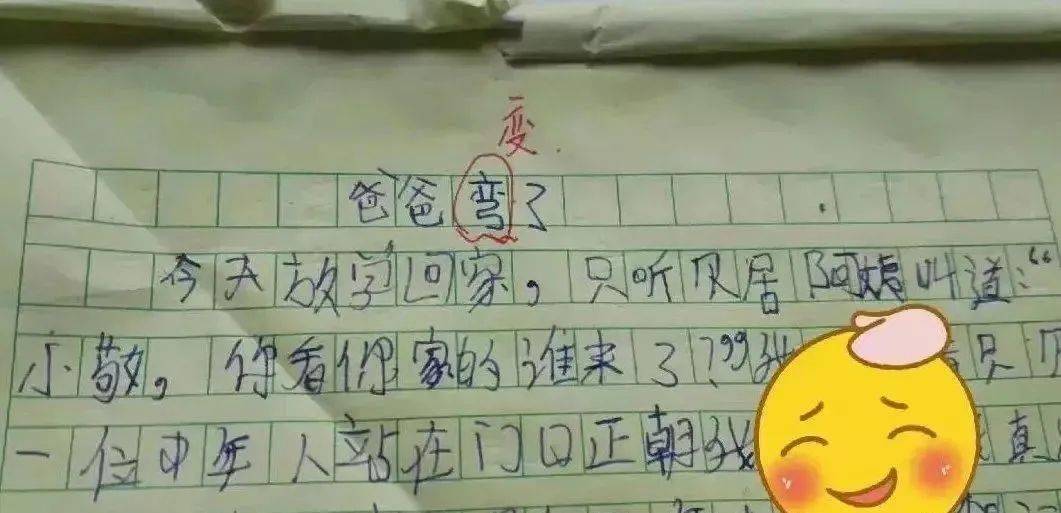 变
爸爸弯了
今天放学回家,只听见居阿姨叫道:“
小敬,你看你家的谁来了?”我 只见
一位中年人站在门口正朝我 真